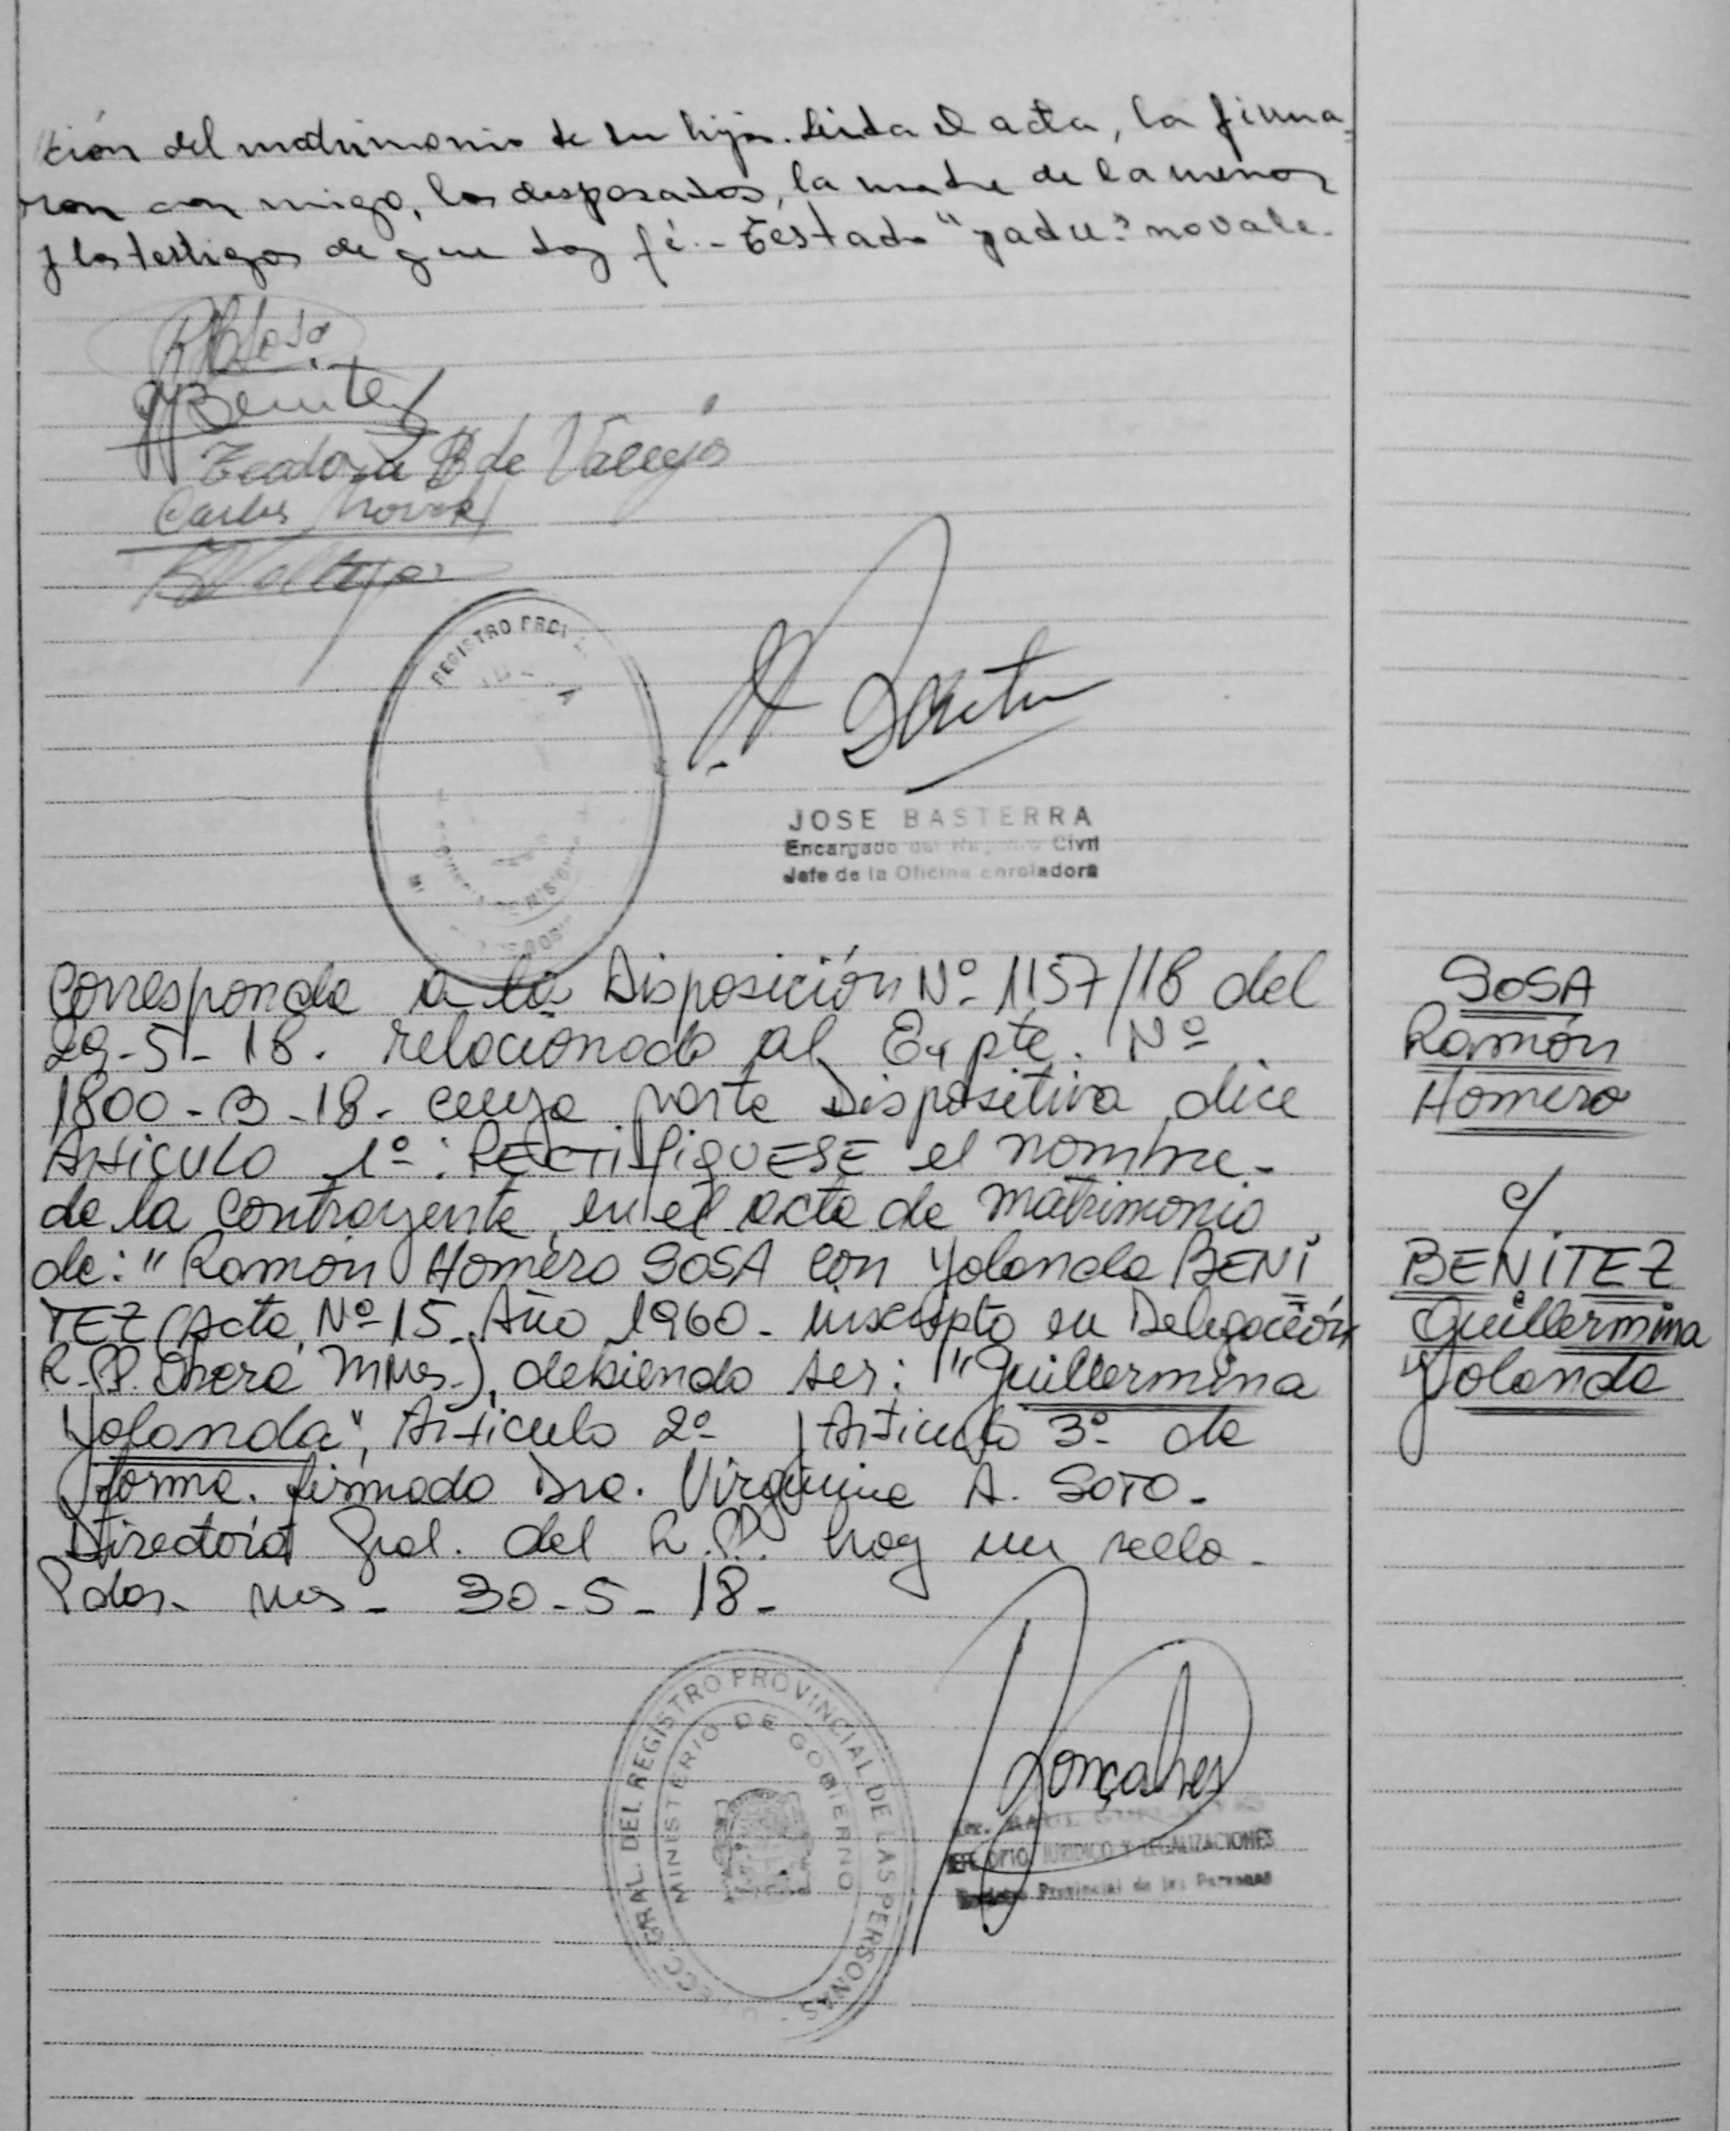 ción del matrimonio de su hija. Leida el acta, la firma-
ron con migo, los desposados, la madre de la menor
y los testigos de que doy fé.- Testado "yadu" no vale.
RHSosa
YBenitez
Teodora B de Vallejos
Carlos
Vallejos
REGISTRO PROVI
JOSE BASTERRA
Encargado del Registro Civil
Jefe de la Oficina enroladora
Corresponde a la Disposición Nº 1157/18 del
29-5-18. relacionado al Expte. Nº
1800-B-18- cuya parte Dispositiva dice
Articulo 1º: RECTIFIQUESE el nombre-
de la contrayente en el acta de matrimonio
de: "Ramón Homero SOSA con Yolanda BENI
TEZ (Acta Nº 15- Año 1960- inscripto en Delegación
R.P.P. Oberá Mnes.), debiendo ser: "Guillermina
Yolanda", Articulo 2º y Articulo 3º de
forma. firmado Dra. Virginia A. SOTO-
Directora Gral. del R.P.P. hay un sello-
Pdas- Mes- 30-5-18-
SOSA
Ramón
Homero
c/
BENITEZ
Guillermina
Yolanda
GRAL. DEL REGISTRO PROVINCIAL DE LAS PERSONAS
MINISTERIO DE GOBIERNO
Gonçalves
JEFE DPTO. JURIDICO Y LEGALIZACIONES
Registro Provincial de las Personas